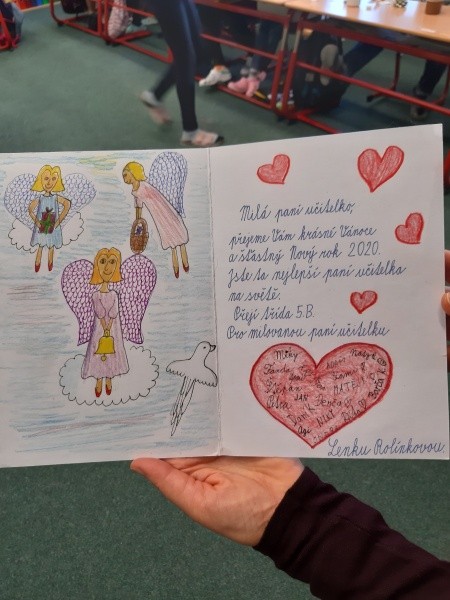 Milá paní učitelko,
přejeme Vám krásné Vánoce
a šťastný Nový rok 2020.
Jste ta nejlepší paní učitelka
na světě.
Přejí třída 5.B.
Pro milovanou paní učitelku
Lenku Rolínkovou.